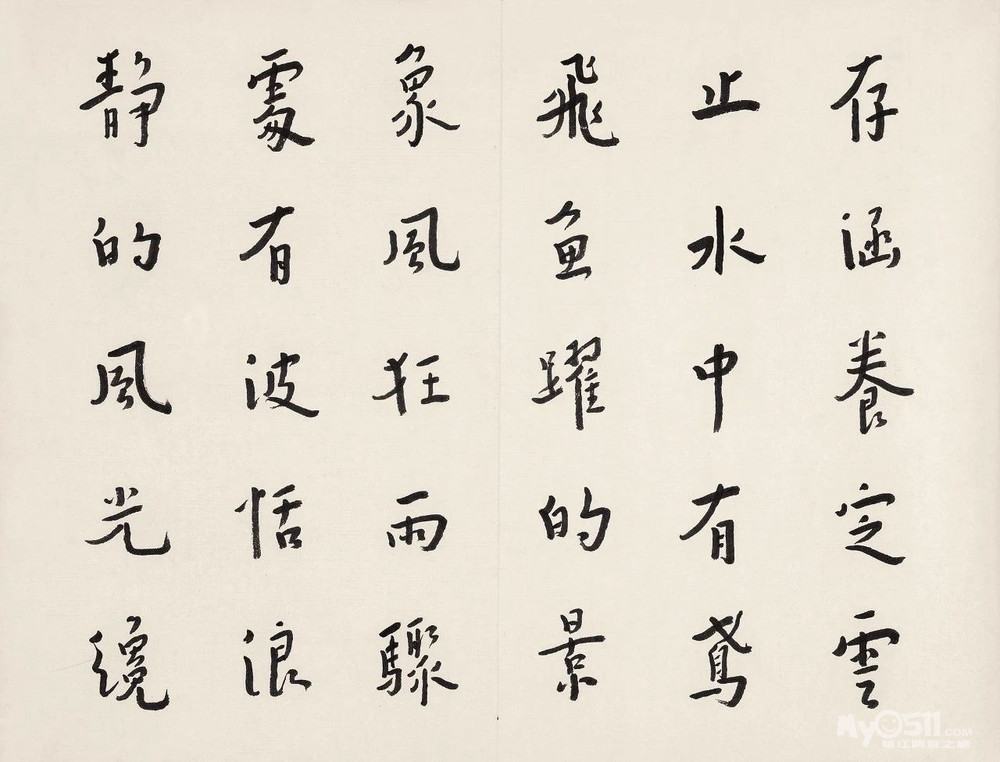 存涵養定雲
止水中有鳶
飛魚躍的景
象風狂雨驟
處有波恬浪
靜的風光纔
My0511.COM